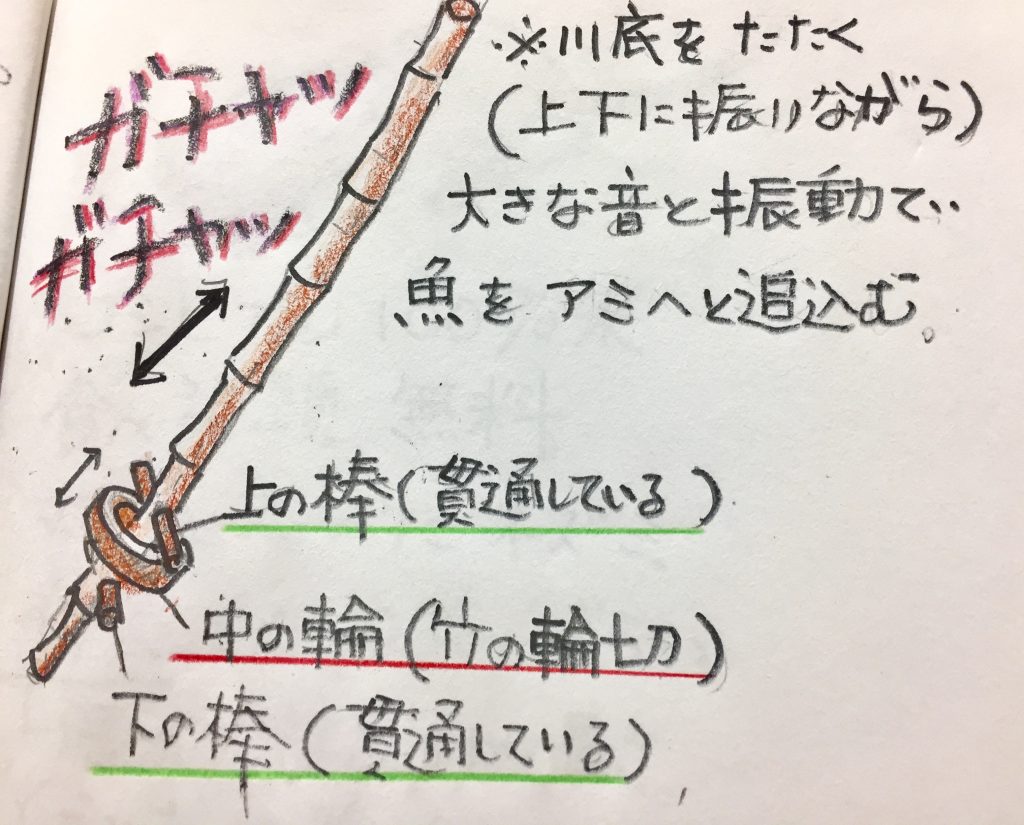 ガチャッ
ガチャッ
※川底をたたく
(上下に振りながら)
大きな音と振動で
魚をアミへと追込む。
上の棒(貫通している)
中の輪(竹の輪切)
下の棒(貫通している)